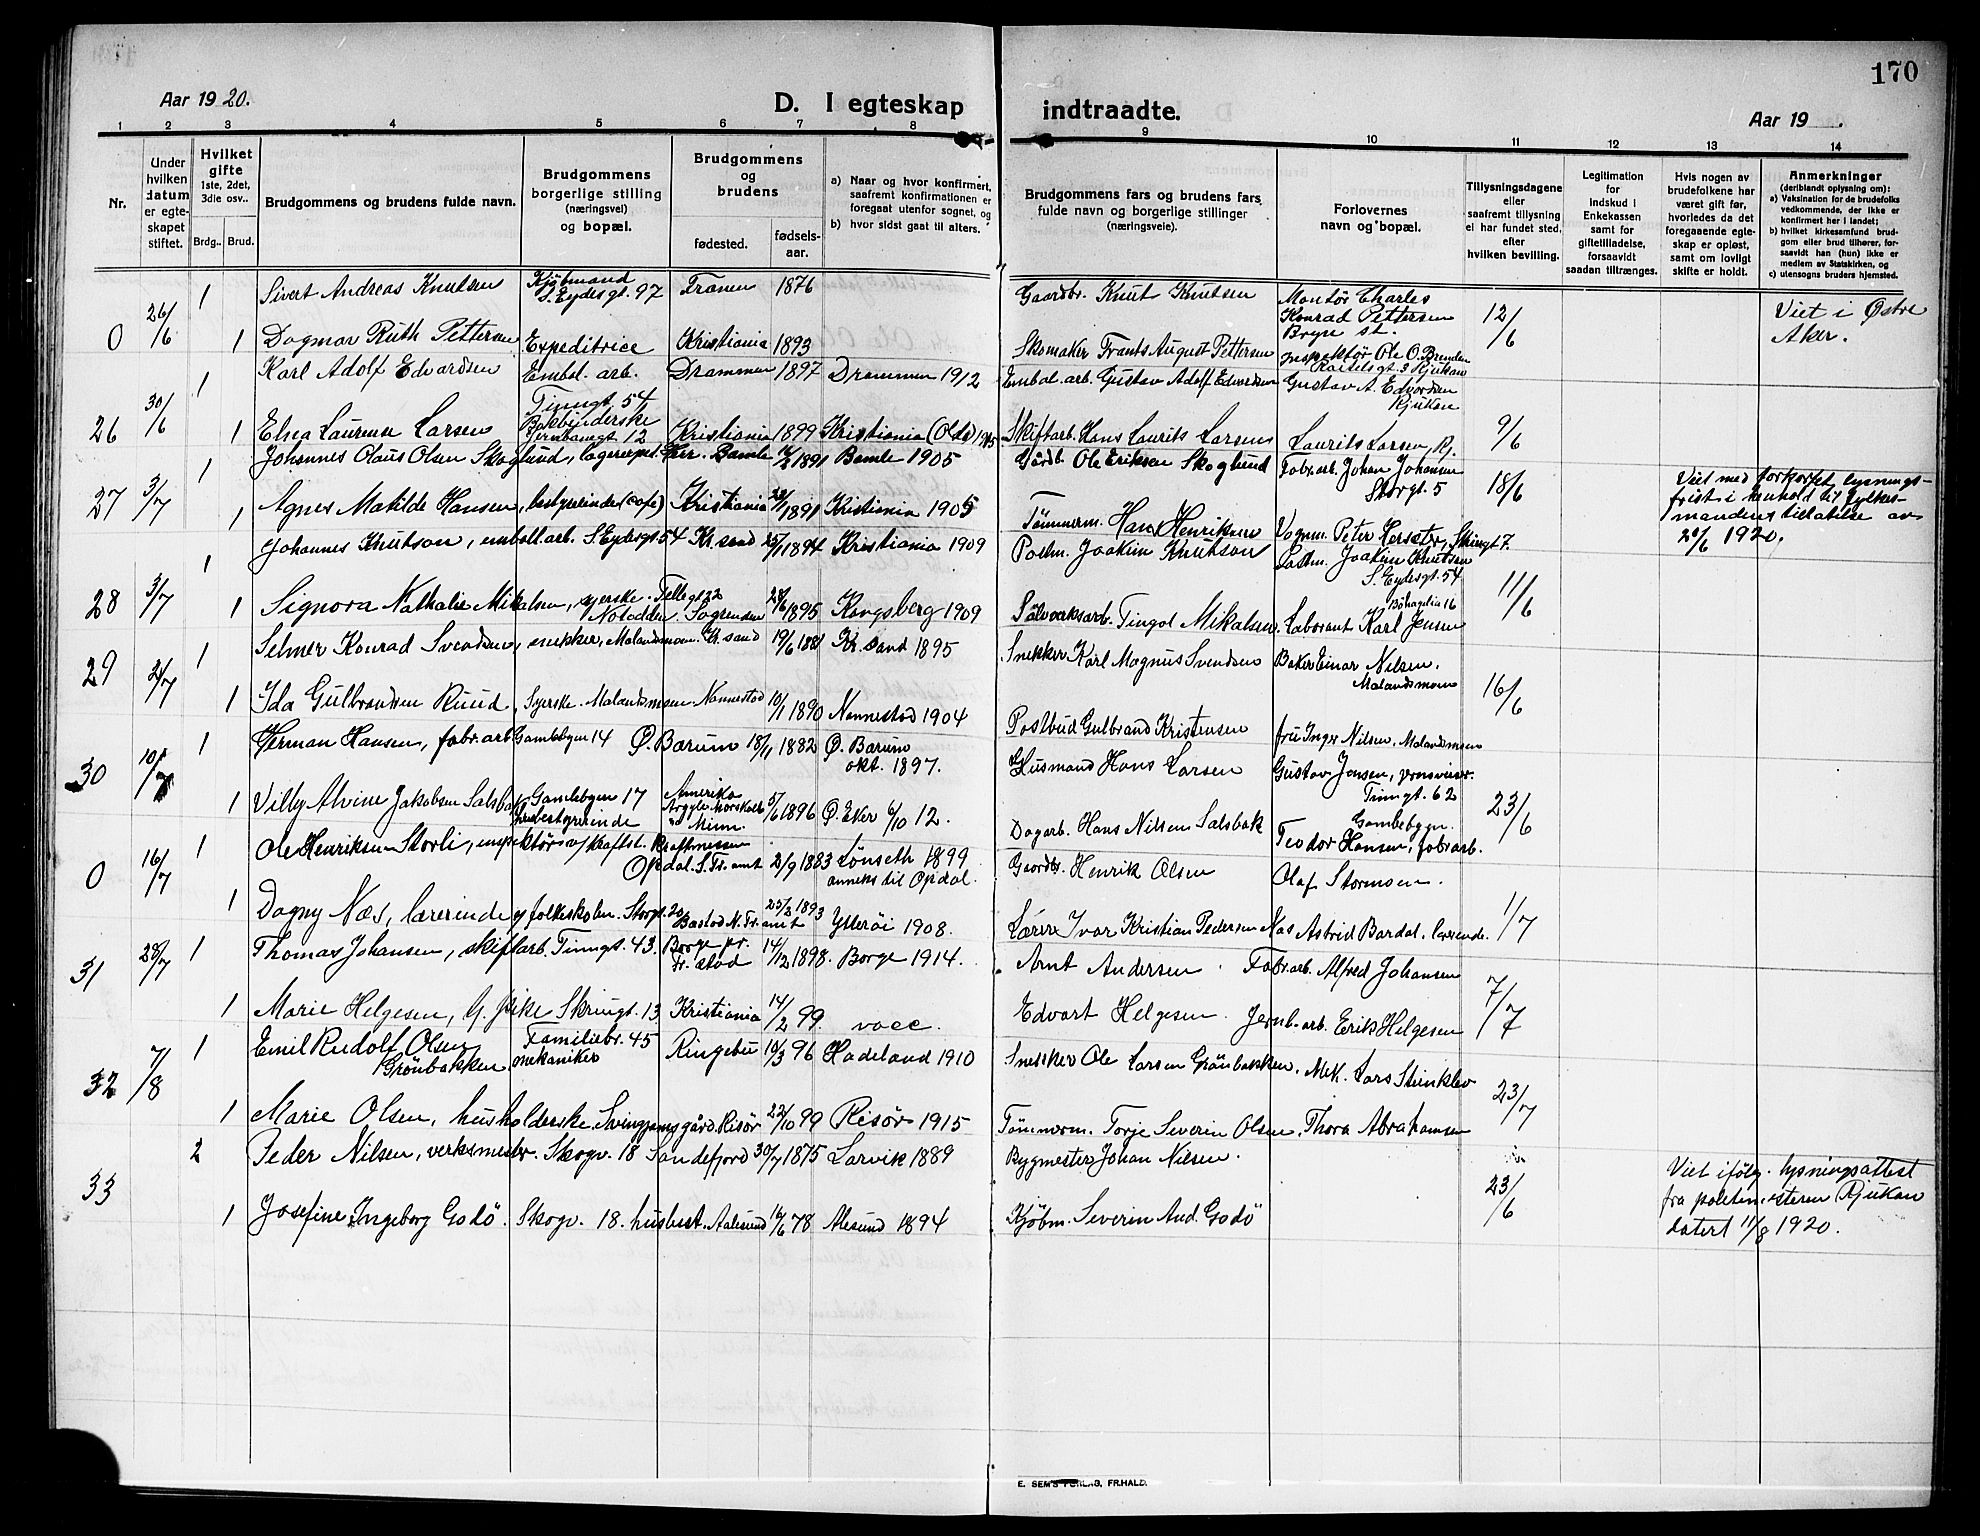 170
Aar 1920.
D. I egteskap indtraadte.
Aar 19 .
1 2 3 4 5 6 7 8 9 10 11 12 13 14
Nr.
Under hvilken datum er egteskapet stiftet.
Hvilket gifte 1ste, 2det, 3die osv..
Brdg.. Brud.
Brudgommens og brudens fulde navn.
Brudgommens borgerlige stilling (næringsvei) og bopæl.
Brudgommens og brudens
fødested.
fødselsaar.
a) Naar og hvor konfirmert, saafremt konfirmationen er foregaat utenfor sognet, og
b) hvor sidst gaat til alters.
Brudgommens fars og brudens fars fulde navn og borgerlige stillinger (næringsveie).
Forlovernes navn og bopæl.
Tillysningsdagene eller saafremt tillysning ei har fundet sted, efter hvilken bevilling.
Legitimation for indskud i Enkekassen samt for giftetilladelse, forsaavidt saadan tiltrænges.
Hvis nogen av brudefolkene har været gift før, hvorledes da det foregaaende egteskap er opløst, samt om lovligt skifte er holdt.
Anmerkninger (deriblandt oplysning om):
a) Vaksination for de brudefolks vedkommende, der ikke er konfirmert her i landet;
b) hvilket kirkesamfund brudgom eller brud tilhører, forsaavidt han (hun) ikke er medlem av Statskirken, og
c) utensogns bruders hjemsted.
0 26/6 1 Sivert Andreas Knutsen Kjøbmand S. Eydesgt. 97 Tranen 1876 Gaardbr. Knut Knutsen Montør Charles Konrad Pettersen Bryn st. 12/6 Viet i Østre Aker.
1 Dagmar Ruth Pettersen Expeditrice Kristiania 1893 Skomaker Frants August Pettersen Inspektør Ole O. Brenden Rjukan
26 30/6 1 Karl Adolf Edvardsen Embal. arb. Tinngt. 54 Drammen 1897 Drammen 1912 Embal. arb. Gustav Adolf Edvardsen Gustav A. Edvardsen Rjukan 9/6
1 Elsea Laurense Larsen Bokbinderske Jernbanegt 12 Kristiania 1899 Kristiania (Oslo) 1915 Skiftarb. Hans Laurits Larsen Laurits Larsen, Rj.
27 3/7 1 Johannes Olaus Olsen Skoglund, lagerexp. Bamle 1891 Bamle 1905 Gårdb. Ole Eriksen Skoglund Fabr.arb. Johan Johansen Storgt. 5 18/6 Viet med forkortet lysningsfrist i henhold til fylkesmandens tillatelse av 20/6 1920.
1 Agnes Matilde Hansen, bestyrerinde (café) Kristiania 23/1 1891 Kristiania 1905 Tømmerm. Hans Henriksen Vognm. Peter Herseter, Skringt 7.
28 3/7 1 Johannes Knutson, emball.arb. S. Eydesgt. 54 Kr. sand 25/1 1894 Kristiania 1909 Postm. Joakim Knutson Postm. Joakim Knutson S. Eydesgt. 54 11/6
1 Signora Nathalie Mikalsen, syerske. Tellegt 22 Notodden Sogrenden 28/6 1895 Kongsberg 1909 Sølvverksarb. Tingol Mikalsen. Laborant Karl Jensen Bøhagelia 16
29 2/7 1 Selmer Konrad Svendsen, snekker, Mælandsmoen. Kr. sand 19/6 1881 Kr. sand 1895 Snekker Karl Magnus Svendsen Baker Einar Nilsen. Mælandsmoen 16/6
1 Ida Gulbrandsen Ruud, Syerske. Mælandsmoen. Nannestad 10/1 1890 Nannestad 1904 Postbud Gulbrand Kristensen fru Inger Nilsen, Mælandsmoen
30 10/7 1 Herman Hansen, fabr.arb. Gamlebyen 14 Ø. Bærum 18/11 1882 Ø. Bærum okt. 1897. Husmand Hans Larsen Gustav Jensen, Tinngt. 62 23/6
1 Villy Alvine Jakobsen Salsbak Gamlebyen 17 husbestyrerinde Amerika Argyle Minn. 5/6 1896 Ø. Eker 6/10 12. Dagarb. Hans Nilsen Salsbak Gamlebyen. Teodor Hansen, fabr.arb.
0 16/7 1 Ole Henriksen Storli, inspektør v/ kraftst. Kraftmessen Opdal. S. Tr. amt 2/9 1883 Lønseth 1899 anneks til Opdal. Gaardbr. Henrik Olsen Olaf Stormoen. 1/7
1 Dagny Næs, lærerinde v/ folkeskolen. Storgt. 20 Bastad N. Tr. amt 25/2 1893 Ytterøi 1908. Lærer Ivar Kristian Pedersen Næs Astrid Bardal. lærerinde.
31 28/7 1 Thomas Johansen, skiftarb. Tinngt. 43. Borge pr. Fr. stad 14/12 1898. Borge 1914. Arnt Andersen. Fabr.arb. Alfred Johansen 7/7
1 Marie Helgesen, G. pike Skringt. 13 Kristiania 14/2 99 vacc. Edvart Helgesen. Jernb. arb. Erik Helgesen
32 7/8 1 Emil Rudolf Olsen Grønbakken Familiebr. 45 mekaniker Ringebu 10/3 96 Hadeland 1910 Snekker Ole Larsen Grønbakken. Mek. Lars Steinklev 23/7
1 Marie Olsen, husholderske. Svingomsgård. Risør 22/10 99 Risør 1915 Tømmerm. Torje Severin Olsen. Thora Abrahamsen
33 2 Peder Nilsen, verksmester. Skogv. 18 Sandefjord 30/7 1875 Larvik 1889 Bygmester Johan Nilsen. 23/6 Viet ifølg. lysningsattest fra politimesteren Rjukan datert 11/8 1920.
1 Josefine Ingeborg Godø. Skogv. 18. husbest. Aalesund 16/6 78 Alesund 1894 Kjøbm. Severin And. Godø
E. SEM'S FORLAG, FR.HALD.